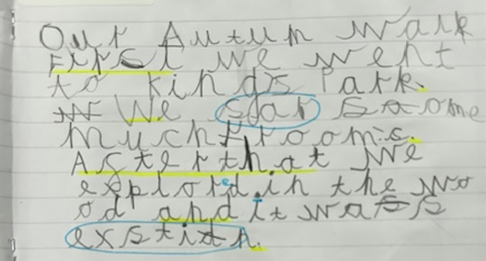 Our Autun walk
First we went
to kinds Park.
We saar some
muchrooms.
Asterthat we
explord in the wo
od and it wass
exstidn.